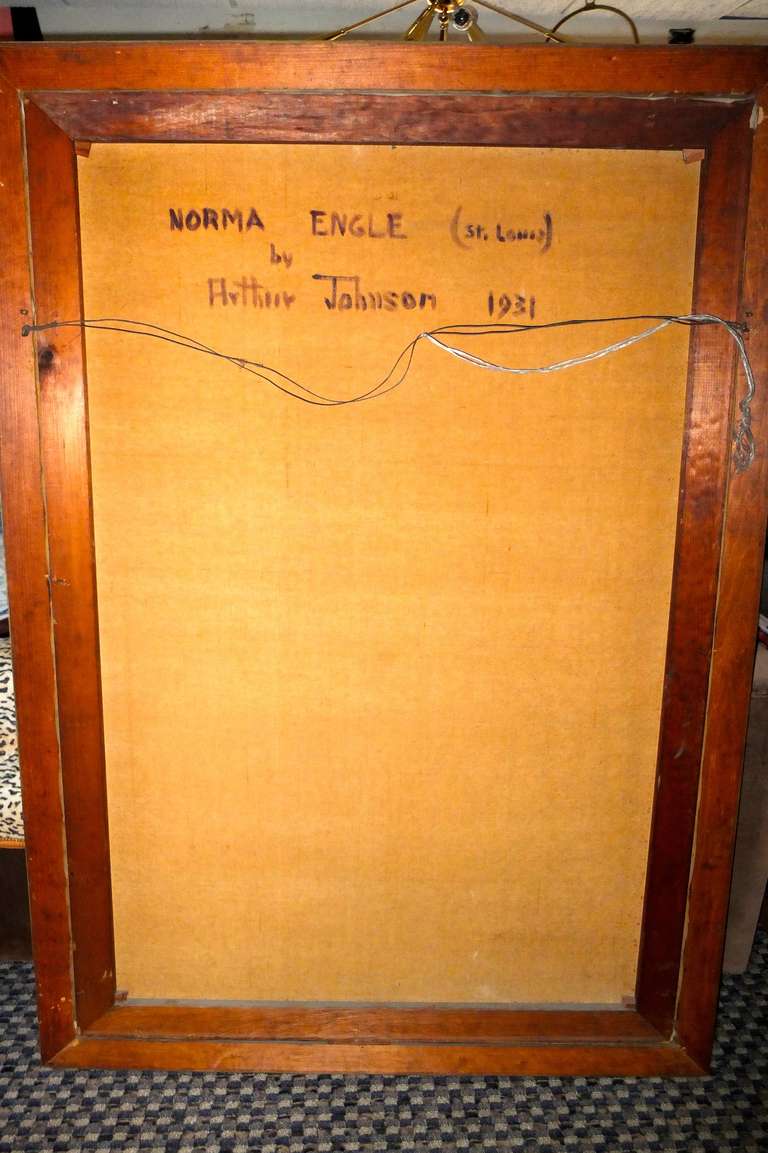 NORMA ENGLE (St. Louis)
by
Arthur Johnson 1931